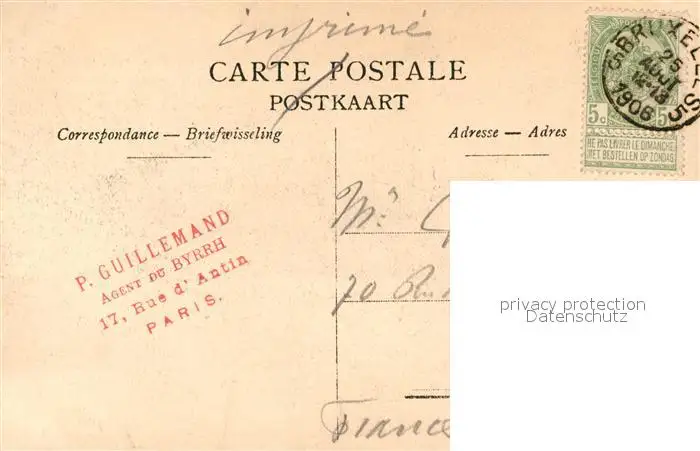 imprimé
CARTE POSTALE
POSTKAART
Correspondance — Briefwisseling
Adresse — Adres
BRUXELLES 5
25
AOUT
1906
5c 5c
NE PAS LIVRER LE DIMANCHE
NIET BESTELLEN OP ZONDAG
P. GUILLEMAND
AGENT DU BYRRH
17, Rue d'Antin
PARIS.
Mr
70
France
privacy protection
Datenschutz